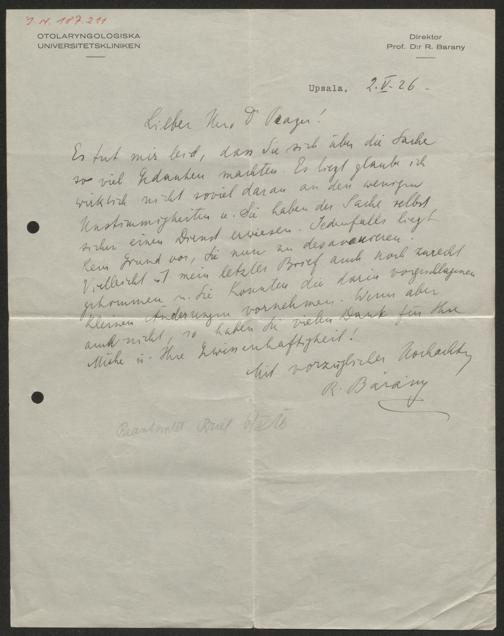 J.N. 187.211
OTOLARYNGOLOGISKA
UNIVERSITETSKLINIKEN
Direktor
Prof. D:r R. Barany
Upsala, 2.V.26.
Lieber Herr Dr Prager!
Es tut mir leid, dass Sie sich über die Sache
so viel Gedanken machten. Es liegt glaube ich
wirklich nicht soviel daran an den wenigen
Unstimmigkeiten u. Sie haben der Sache selbst
sicher einen Dienst erwiesen. Jedenfalls liegt
kein Grund vor, Sie nun zu desavouieren.
Vielleicht ist mein letzter Brief auch noch zurecht
gekommen u. Sie konnten die darin vorgeschlagenen
kleinen Änderungen vornehmen. Wenn aber
auch nicht, so haben Sie vielen Dank für Ihre
Mühe u. Ihre Gewissenhaftigkeit!
Mit vorzüglicher Hochachtg
R. Bárány
Beantwortet Brief